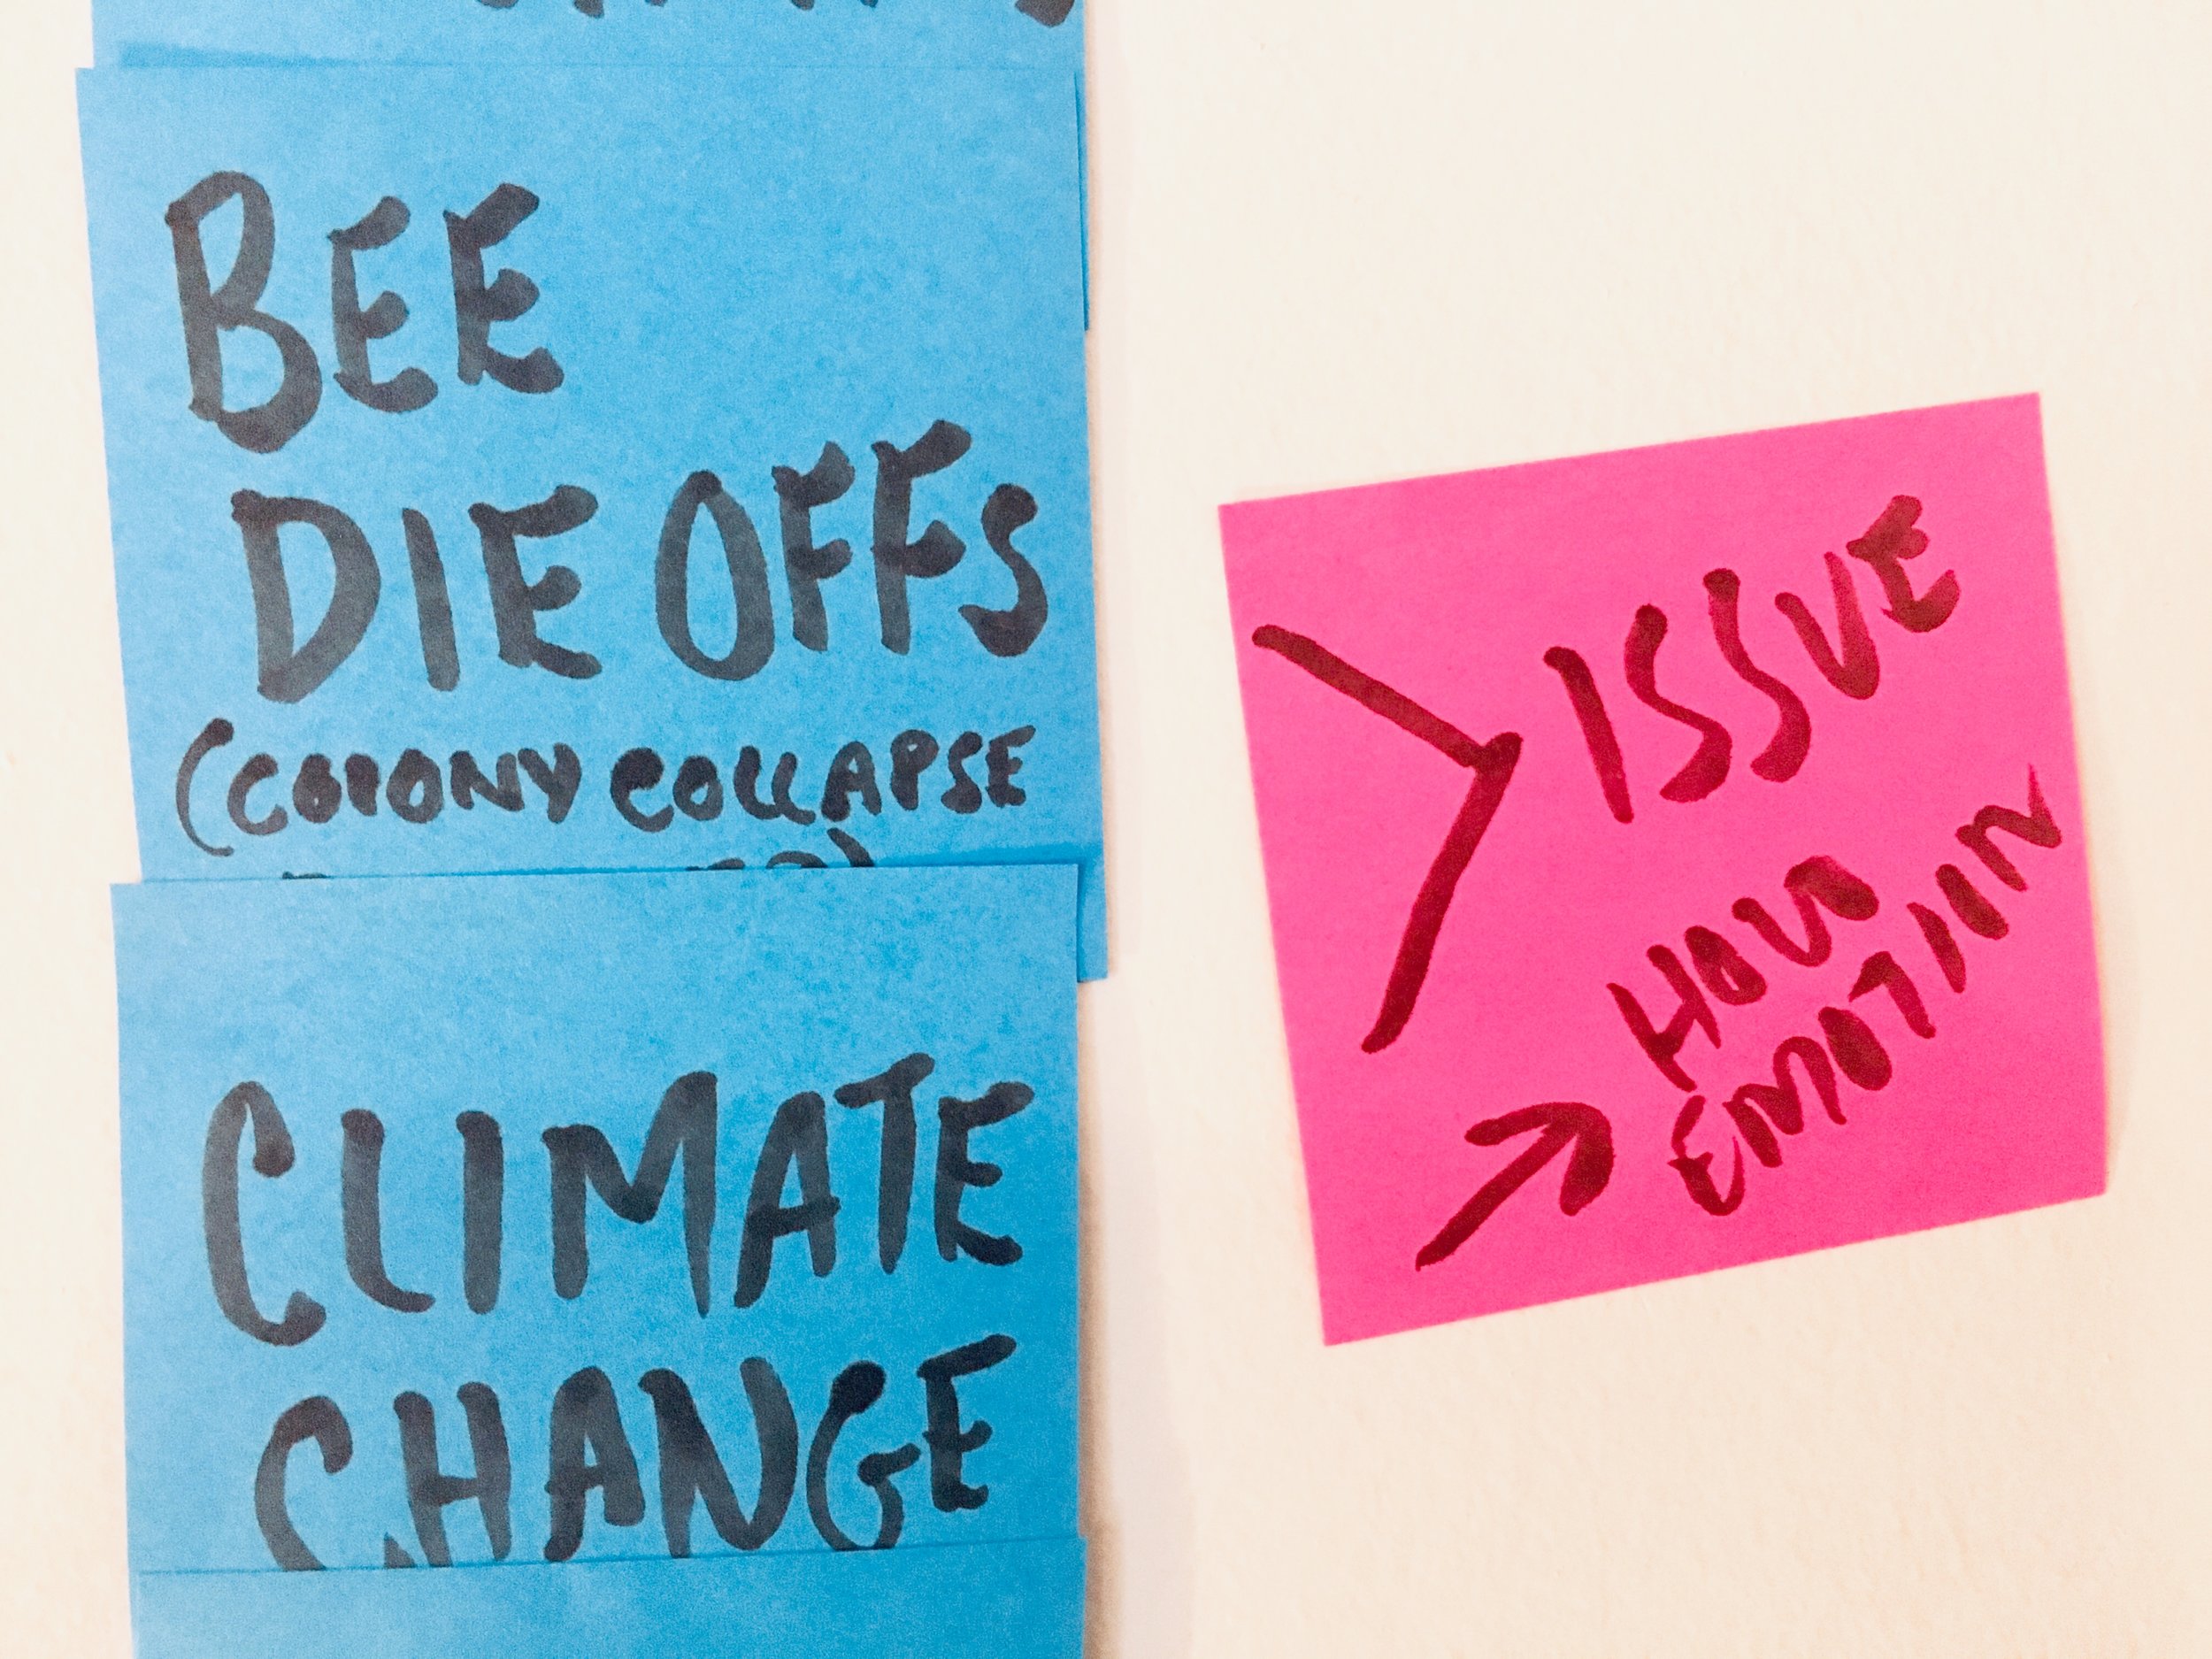 BEE
DIE OFFS
(COLONY COLLAPSE
CLIMATE
CHANGE
> ISSUE
→ HOW
EMOTION